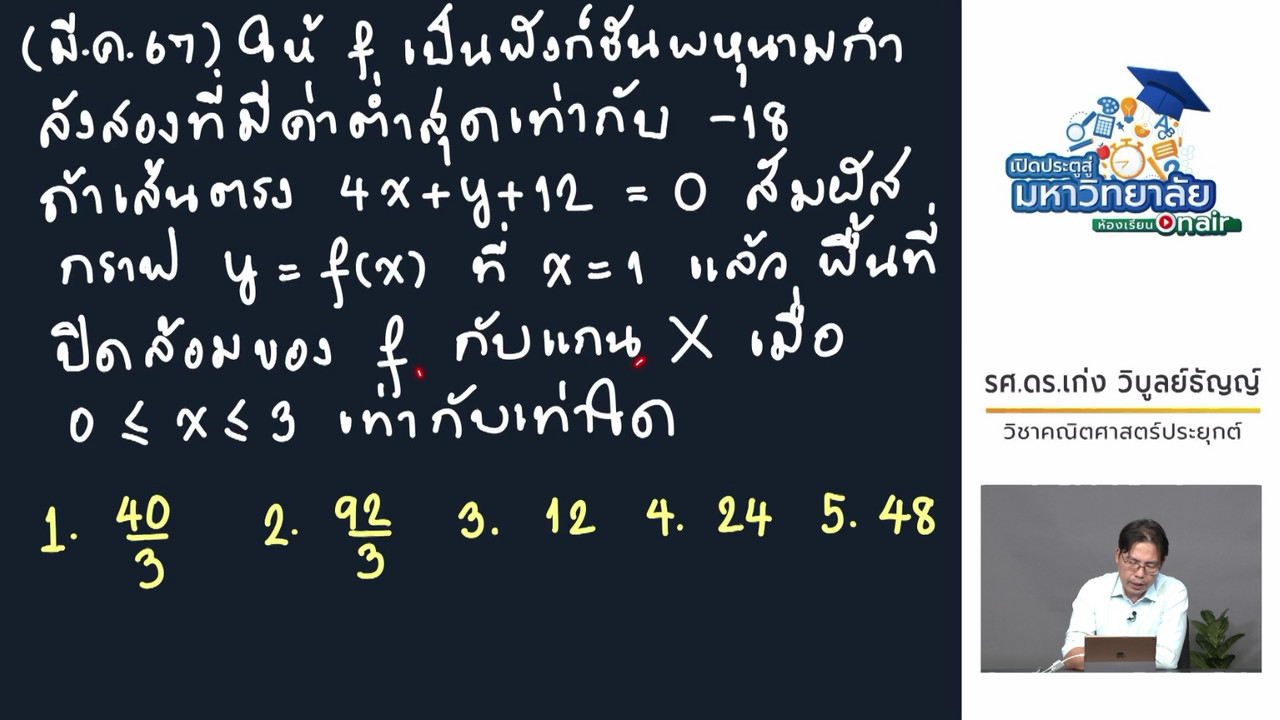 (มี.ค.67) ให้ f เป็นฟังก์ชันพหุนามกำ
ลังสองที่มีค่าต่ำสุดเท่ากับ -18
ถ้าเส้นตรง 4x+y+12 = 0 สัมผัส
กราฟ y = f(x) ที่ x = 1 แล้ว พื้นที่
ปิดล้อมของ f กับแกน X เมื่อ
0 ≤ x ≤ 3 เท่ากับเท่าใด
1. 40/3 2. 92/3 3. 12 4. 24 5. 48
เปิดประตูสู่
มหาวิทยาลัย
ห้องเรียน Onair
รศ.ดร.เก่ง วิบูลย์ธัญญ์
วิชาคณิตศาสตร์ประยุกต์